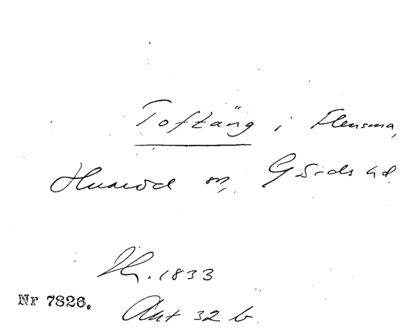 Toftäng i Flensma,
Huaröd sn, Gärds hd.
Ih. 1833
Nr 7826. Akt 32 b.